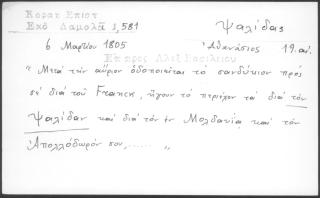 Κοραῆ Επιστ
Εκδ Δαμαλᾶ 1,581
Ψαλίδας
6 Μαρτίου 1805
Ἀθανάσιος 19. αἰ.
Επιστολὴ προς Αλεξ Βασιλείου
"Μετὰ τὴν αὔριον ὁδοποιεῖται τὸ σανδύκιον πρὸς
σὲ διὰ τοῦ Franck, ἤγουν τὸ περιέχον τὰ διὰ τὸν
Ψαλίδαν καὶ διὰ τὸν ἐν Μολδανίᾳ καὶ τὸν
Ἀπολλόδωρόν σου, ...... "